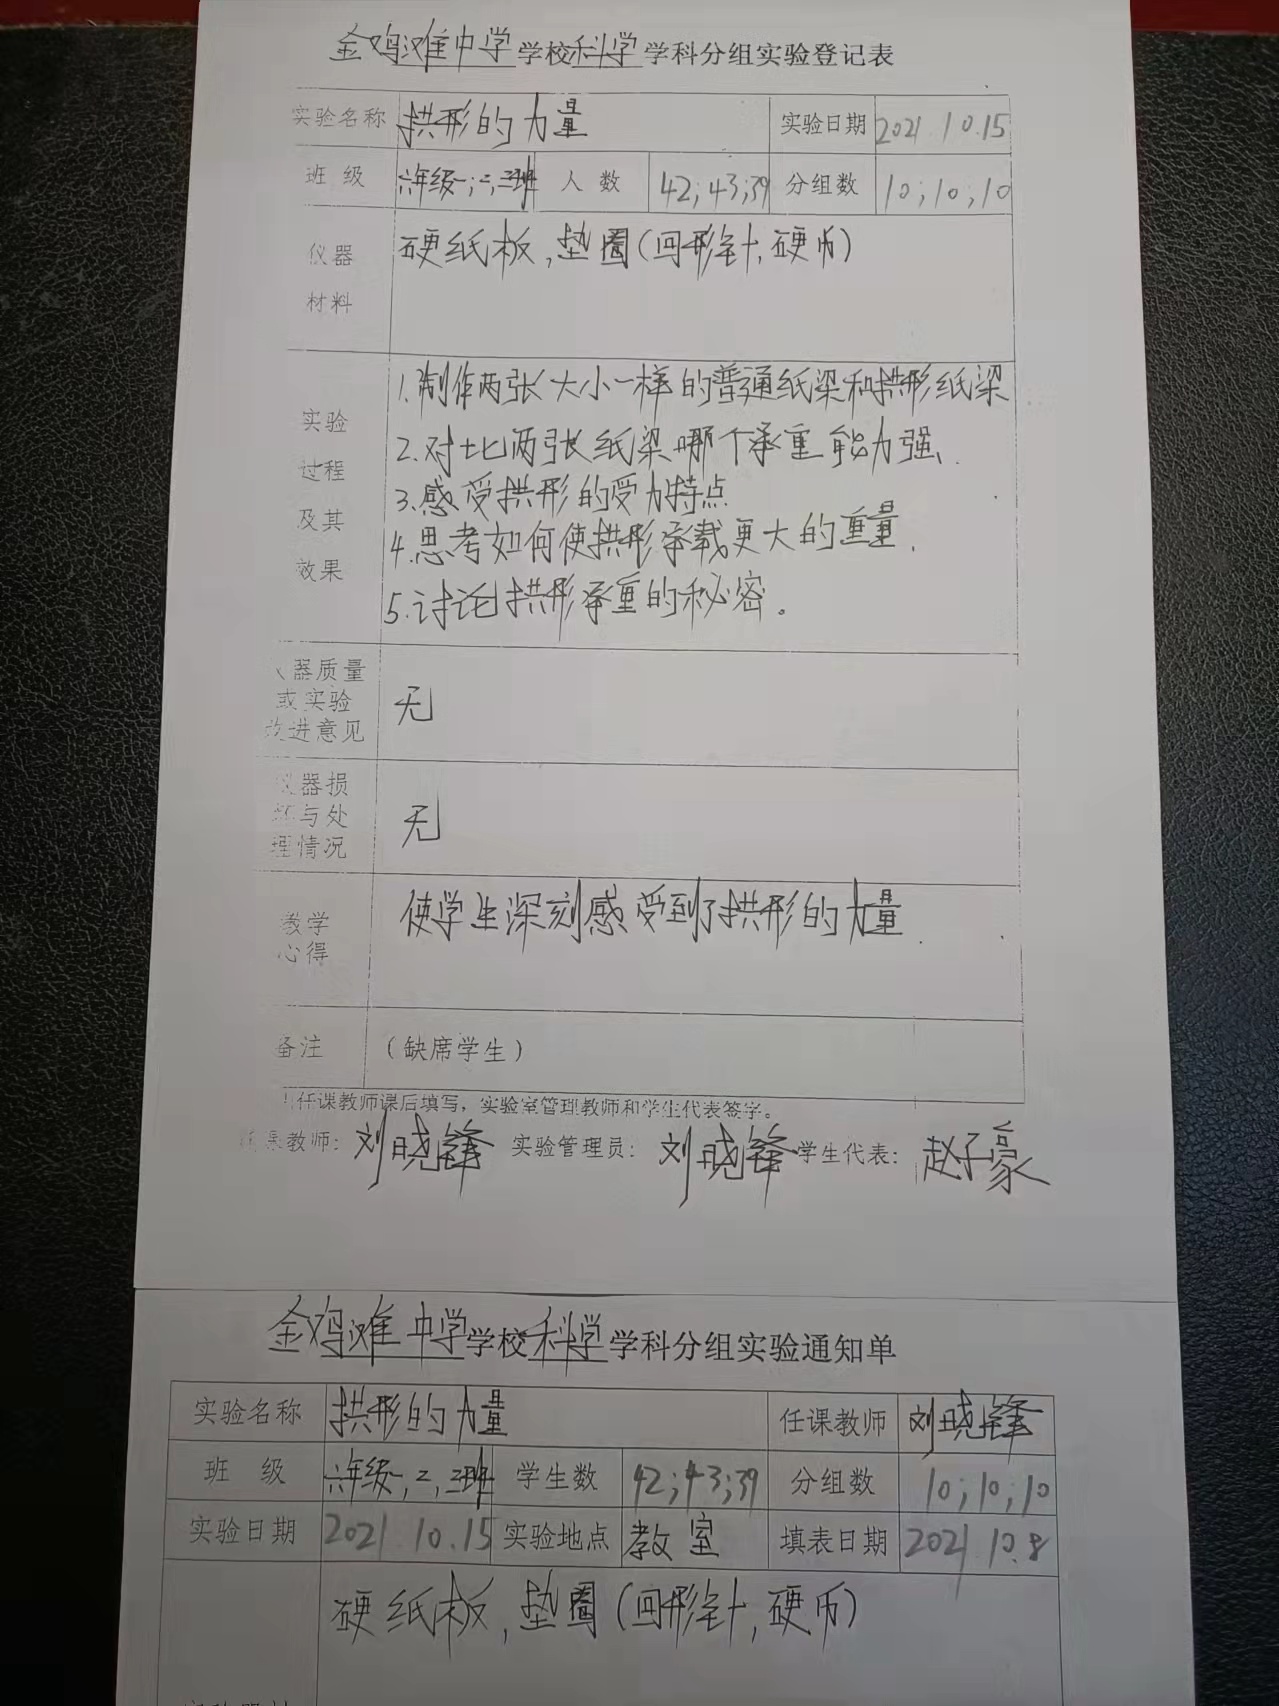 金鸡滩中学学校科学学科分组实验登记表
实验名称 拱形的力量 实验日期 2021.10.15
班级 六年级一;二,三班 人数 42;43;39 分组数 10;10;10
仪器
材料
硬纸板,垫圈(回形针,硬币)
实验
过程
及其
效果
1.制作两张大小一样的普通纸梁和拱形纸梁
2.对比两张纸梁哪个承重能力强.
3.感受拱形的受力特点
4.思考如何使拱形承载更大的重量.
5.讨论拱形承重的秘密。
器质量
或实验
改进意见
无
器损
与处
理情况
无
教学
心得
使学生深刻感受到了拱形的力量.
备注 (缺席学生)
任课教师课后填写,实验室管理教师和学生代表签字。
教师: 刘晓锋 实验管理员: 刘晓锋 学生代表: 赵子豪
金鸡滩中学学校科学学科分组实验通知单
实验名称 拱形的力量 任课教师 刘晓锋
班级 六年级一,二,三班 学生数 42;43;39 分组数 10;10;10
实验日期 2021.10.15 实验地点 教室 填表日期 2021.10.8
硬纸板,垫圈(回形针,硬币)